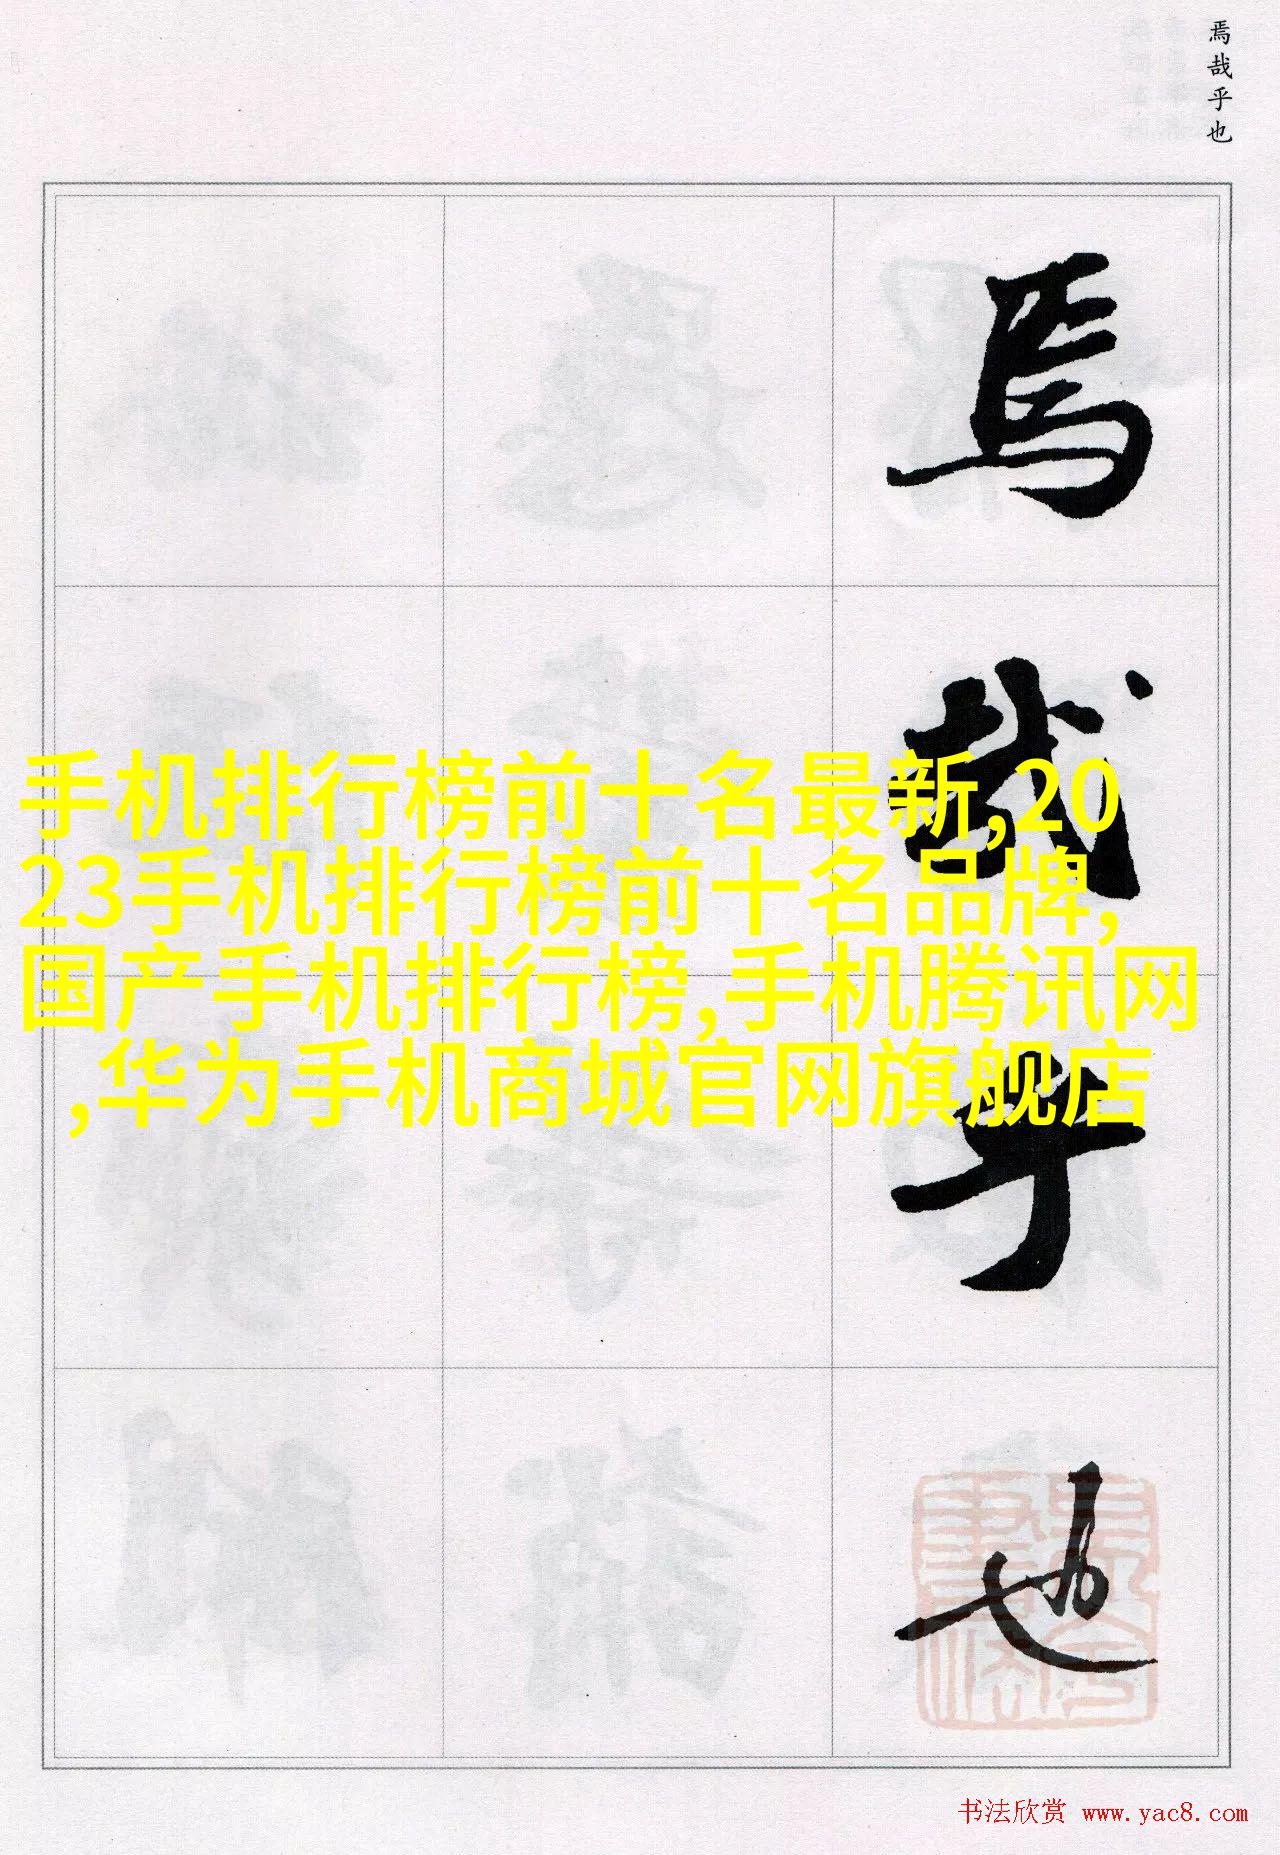 焉哉乎也
焉
哉
乎
也
手机排行榜前十名最新,20
23手机排行榜前十名品牌,
国产手机排行榜,手机腾讯网
,华为手机商城官网旗舰店
书法欣赏 www.yac8.com